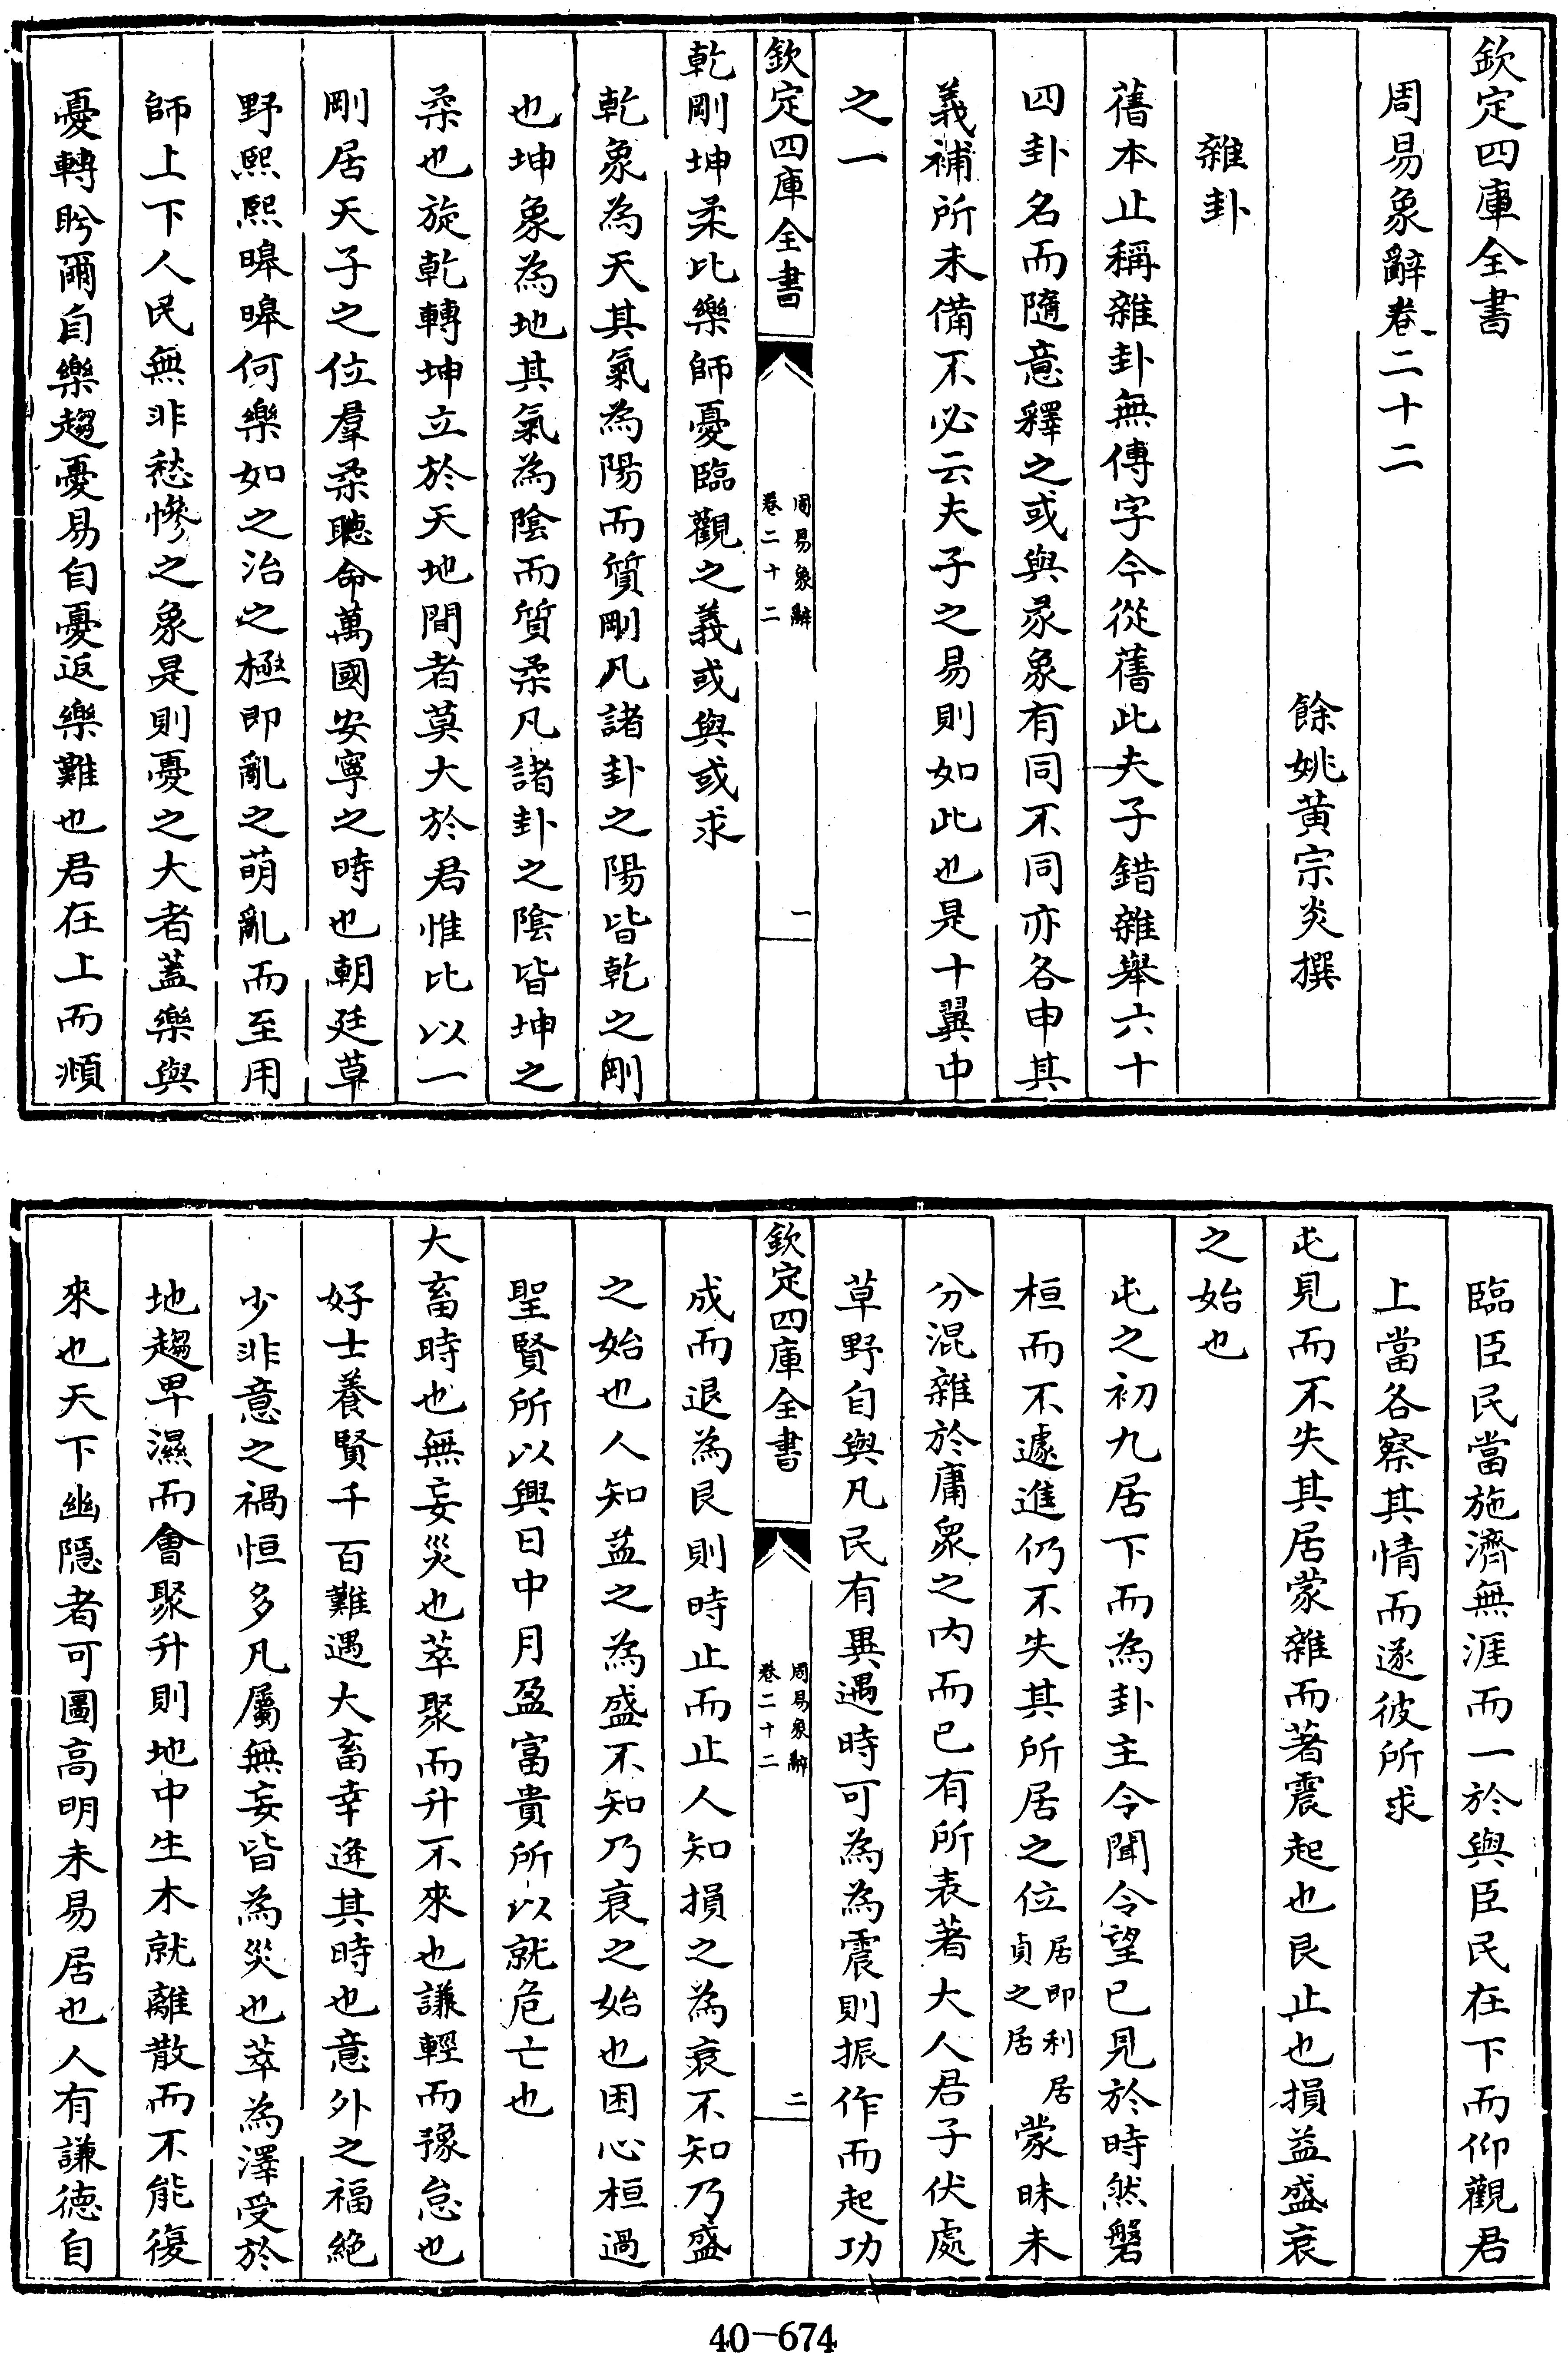 欽定四庫全書
周易象辭卷二十二
餘姚黃宗炎撰
雜卦
舊本止稱雜卦無傳字今從舊此夫子錯雜舉六十
四卦名而隨意釋之或與彖象有同不同亦各申其
義補所未備不必云夫子之易則如此也是十翼中
之一
欽定四庫全書
周易象辭
卷二十二
一
乾剛坤柔比樂師憂臨觀之義或與或求
乾象為天其氣為陽而質剛凡諸卦之陽皆乾之剛
也坤象為地其氣為陰而質柔凡諸卦之陰皆坤之
柔也旋乾轉坤立於天地間者莫大於君惟比以一
剛居天子之位羣柔聽命萬國安寧之時也朝廷草
野熙熙皡皡何樂如之治之極即亂之萌亂而至用
師上下人民無非愁慘之象是則憂之大者蓋樂與
憂轉盻爾自樂趨憂易自憂返樂難也君在上而頫
臨臣民當施濟無涯而一於與臣民在下而仰觀君
上當各察其情而遂彼所求
屯見而不失其居蒙雜而著震起也艮止也損益盛衰
之始也
屯之初九居下而為卦主令聞令望已見於時然磐
桓而不遽進仍不失其所居之位居即利居貞之居蒙昧未
分混雜於庸衆之內而已有所表著大人君子伏處
草野自與凡民有異遇時可為為震則振作而起功
欽定四庫全書
周易象辭
卷二十二
二
成而退為艮則時止而止人知損之為衰不知乃盛
之始也人知益之為盛不知乃衰之始也困心桓過
聖賢所以興日中月盈富貴所以就危亡也
大畜時也無妄災也萃聚而升不來也謙輕而豫怠也
好士養賢千百難遇大畜幸逢其時也意外之福絕
少非意之禍恒多凡屬無妄皆為災也萃為澤受於
地趨卑濕而會聚升則地中生木就離散而不能復
來也天下幽隱者可圖高明未易居也人有謙德自
40-674